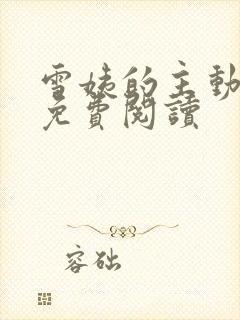 雪姨的主動
免費閱讀
容础